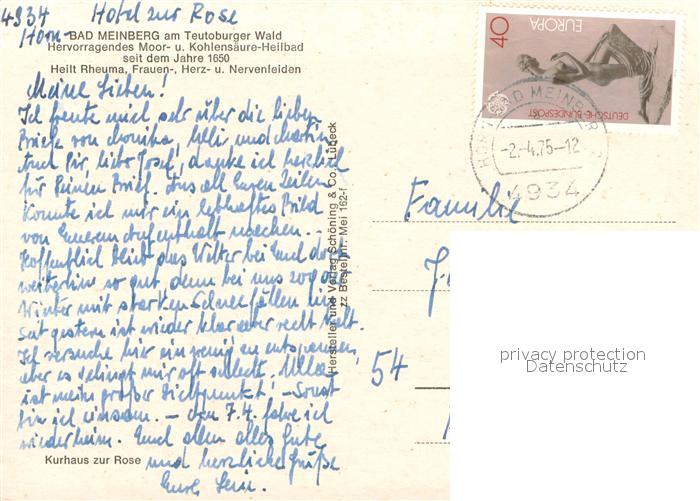 4934 Hotel zur Rose
Horn-
BAD MEINBERG am Teutoburger Wald
Hervorragendes Moor- u. Kohlensäure-Heilbad
seit dem Jahre 1650
Heilt Rheuma, Frauen-, Herz- u. Nervenleiden
Meine Lieben!
Ich freute mich sehr über die lieben
Briefe von Monika, Ulli, und Martin
Und Dir, lieber Josef, danke ich herzlich
für Deinen Brief. Aus all Euren Zeilen
konnte ich mir ein lebhaftes Bild
von Eurem Aufenthalt machen. -
Hoffentlich bleibt das Wetter bei Euch dort
weiterhin so gut, denn bei uns zog der
Winter mit starken Schneefällen ein.
Seit gestern ist wieder klar aber recht kalt.
Ich versuche hier ein wenig zu entspannen,
aber es gelingt mir oft schlecht.
ist mein großer Lichtpunkt, - Sonst
bin ich einsam. - den 7.4. fahre ich
wieder heim. Euch allen alles Gute
und herzliche Grüße
Eure
Kurhaus zur Rose
Hersteller und Verlag Schöning & Co., Lübeck
zz Bestell.nr. Mei 162-f
EUROPA
40
DEUTSCHE BUNDESPOST
HORN-BAD MEINBERG
-2.-4.75-12
4934
Familie
54
privacy protection
Datenschutz